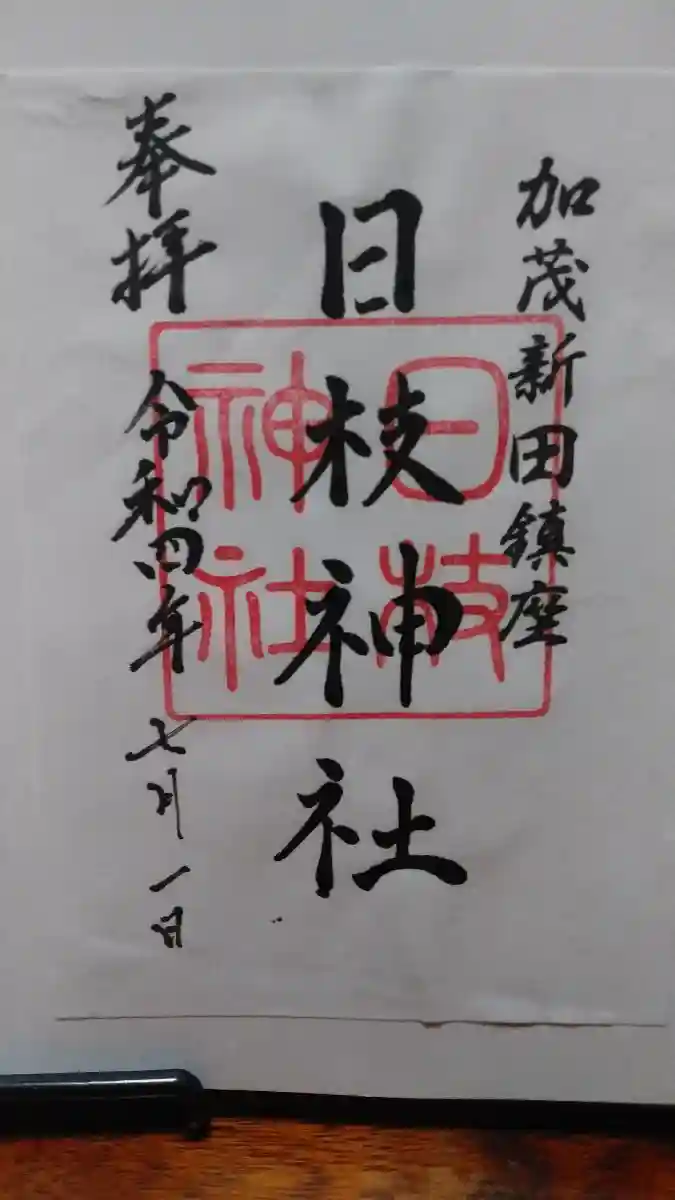 加茂新田鎮座
日枝神社
日枝
神社
奉拝
令和四年七月一日